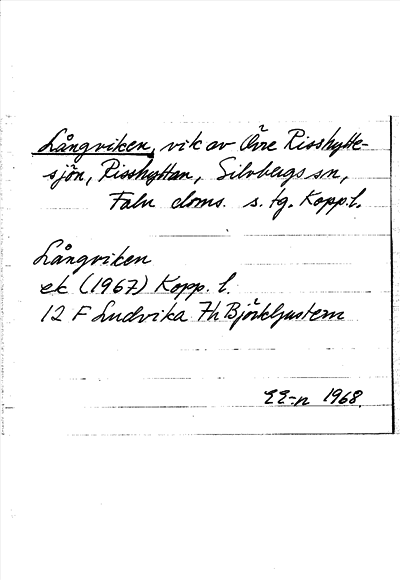 Långviken, vik av Övre Risshytte-
sjön, Risshyttan, Silvbergs sn,
Falu doms. s. tg. Kopp. l.
Långviken
ek (1967) Kopp. l.
12 F Ludvika 7h Björkljustern
EE-n 1968.